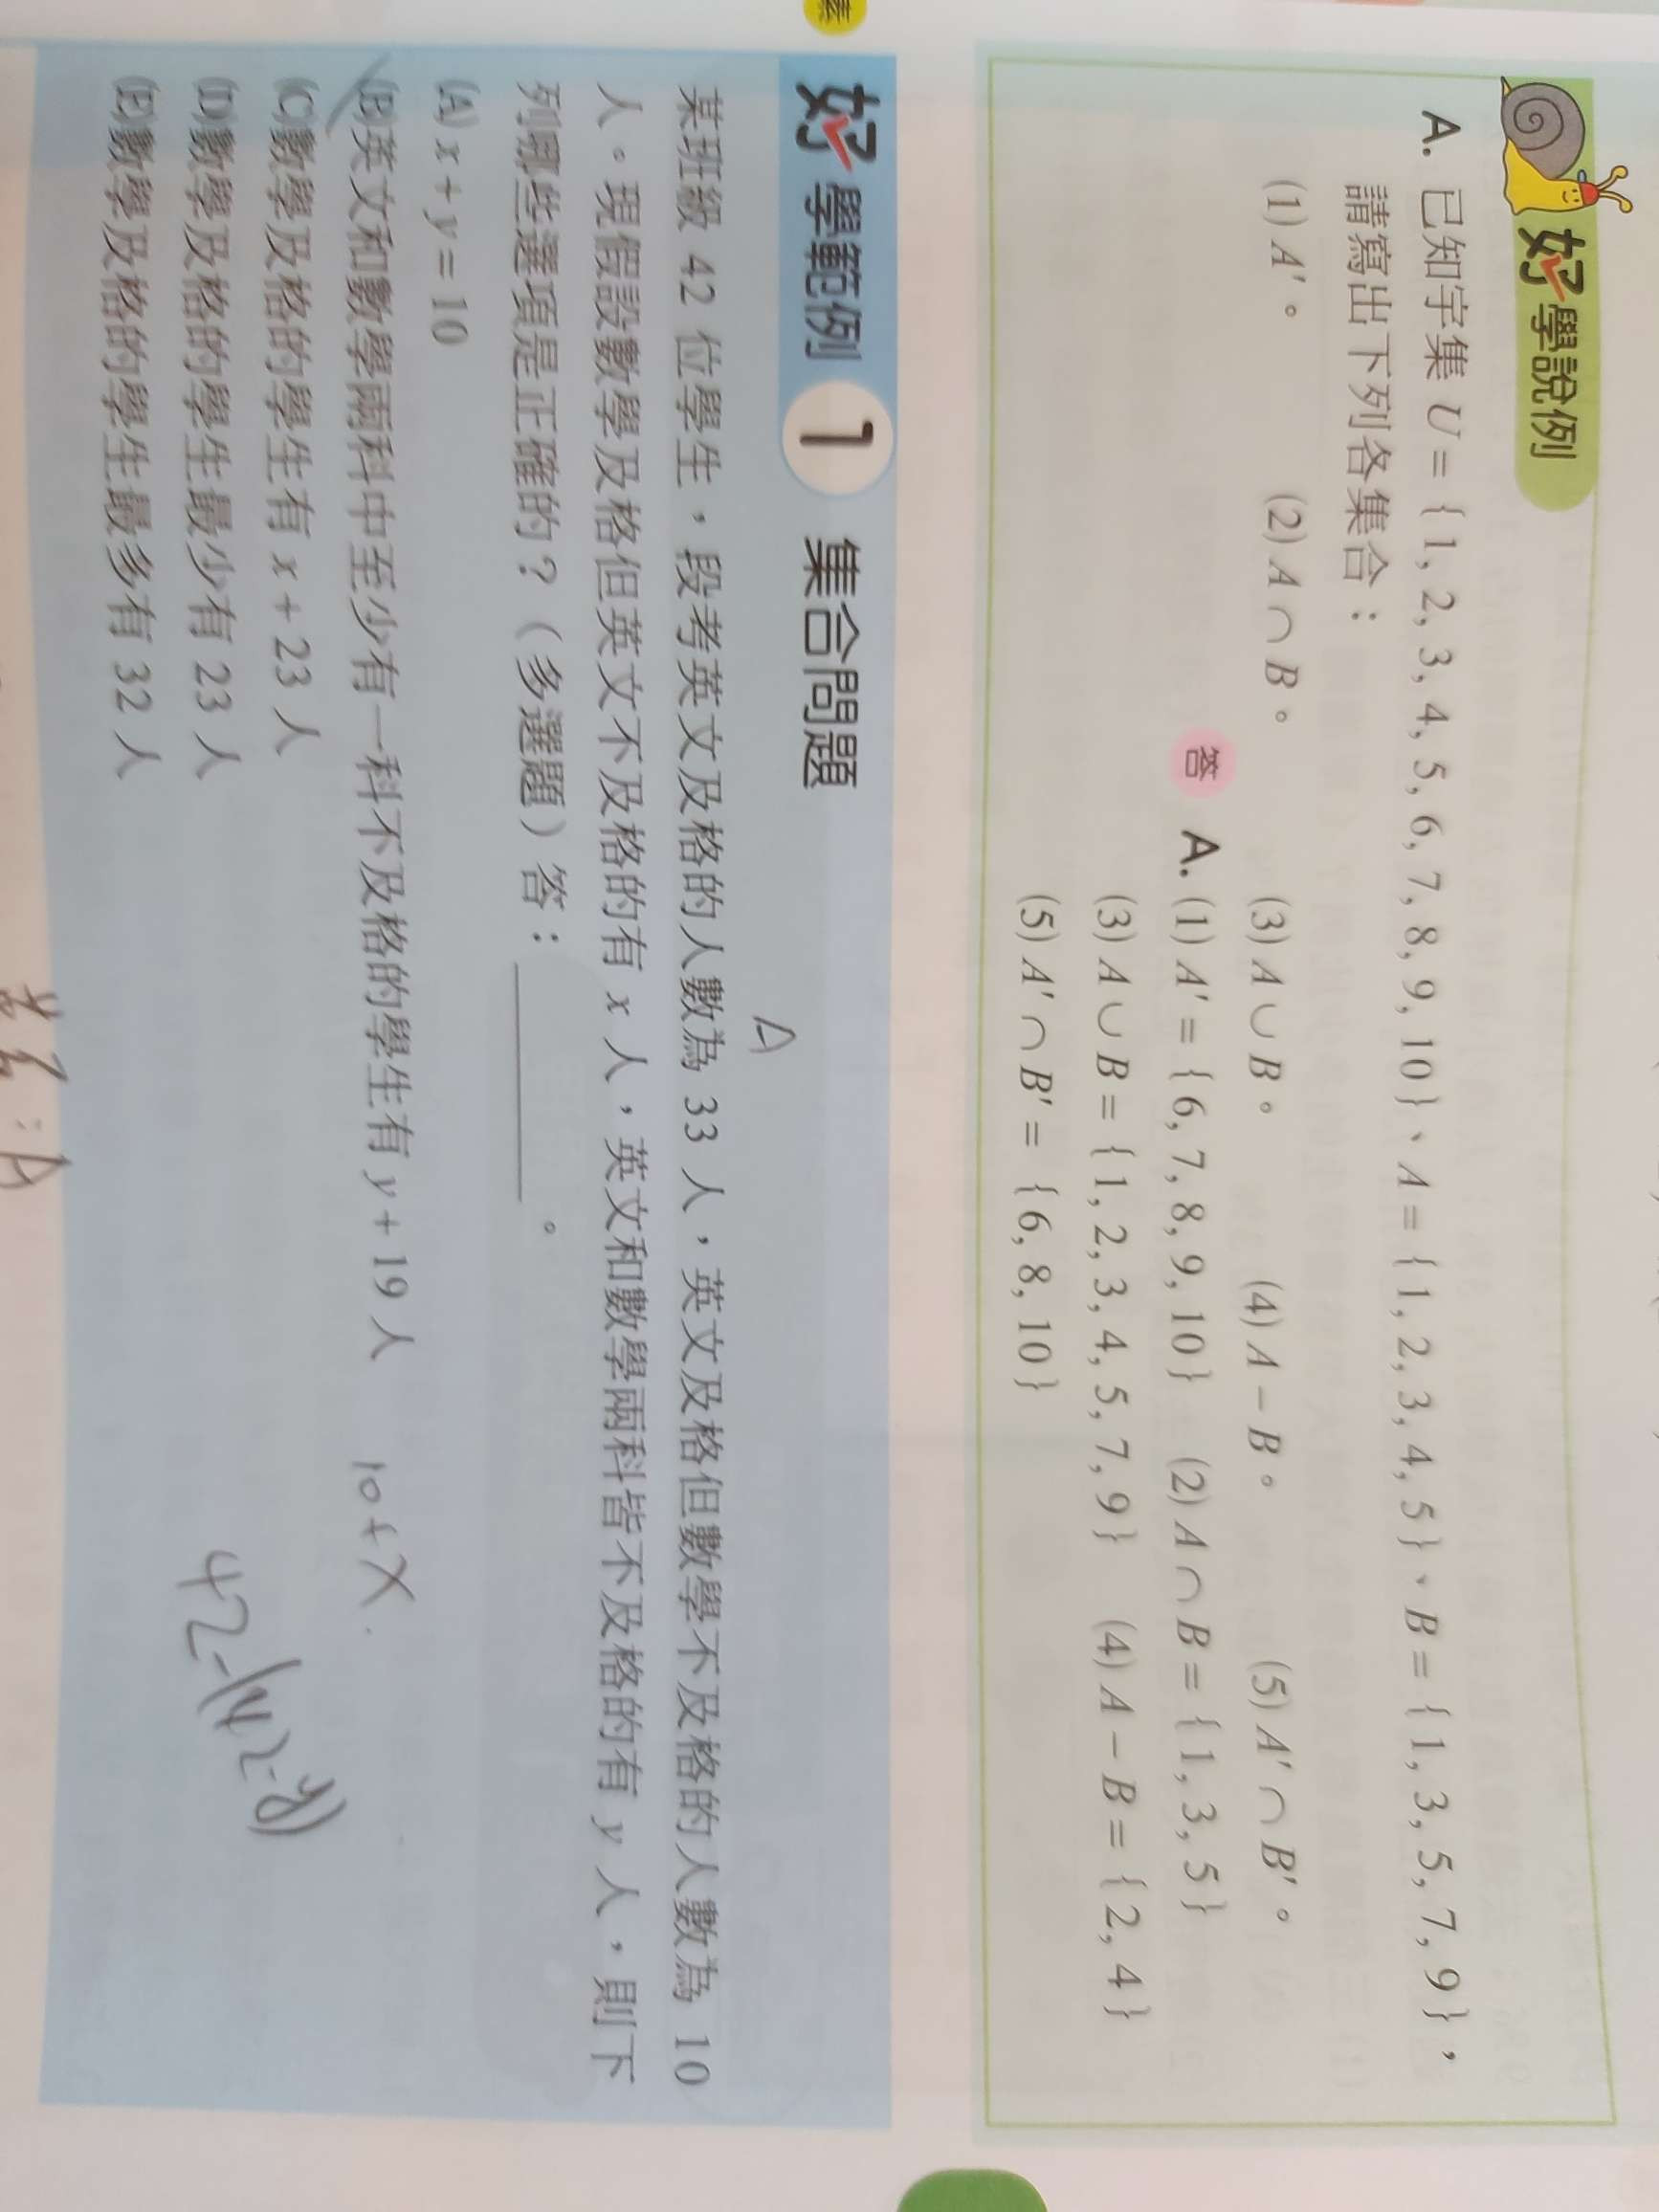 好學說例
A. 已知宇集 U = { 1, 2, 3, 4, 5, 6, 7, 8, 9, 10 }、A = { 1, 2, 3, 4, 5 }、B = { 1, 3, 5, 7, 9 },
請寫出下列各集合：
(1) A′。 (2) A ∩ B。 (3) A ∪ B。 (4) A − B。 (5) A′ ∩ B′。
答 A. (1) A′ = { 6, 7, 8, 9, 10 } (2) A ∩ B = { 1, 3, 5 }
(3) A ∪ B = { 1, 2, 3, 4, 5, 7, 9 } (4) A − B = { 2, 4 }
(5) A′ ∩ B′ = { 6, 8, 10 }
好學範例 1 集合問題
某班級 42 位學生，段考英文及格的人數為 33 人，英文及格但數學不及格的人數為 10
人。現假設數學及格但英文不及格的有 x 人，英文和數學兩科皆不及格的有 y 人，則下
列哪些選項是正確的？（多選題）答：＿＿＿＿。
(A) x + y = 10
(B)英文和數學兩科中至少有一科不及格的學生有 y + 19 人 10 + x
(C)數學及格的學生有 x + 23 人
(D)數學及格的學生最少有 23 人
(E)數學及格的學生最多有 32 人